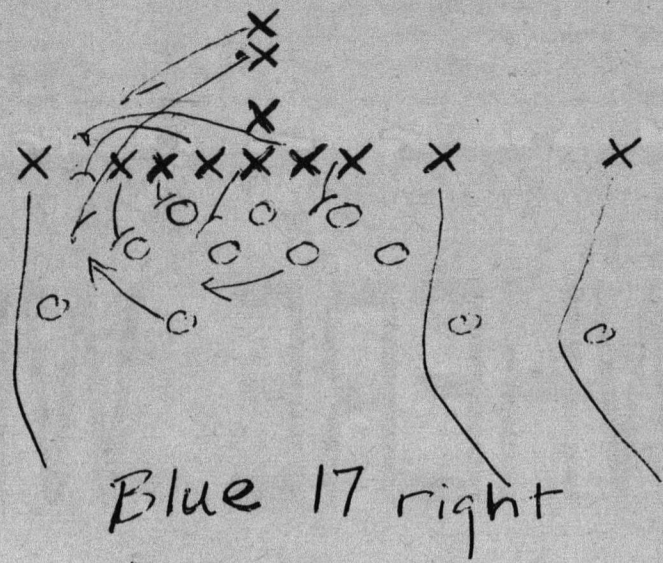 Blue 17 right